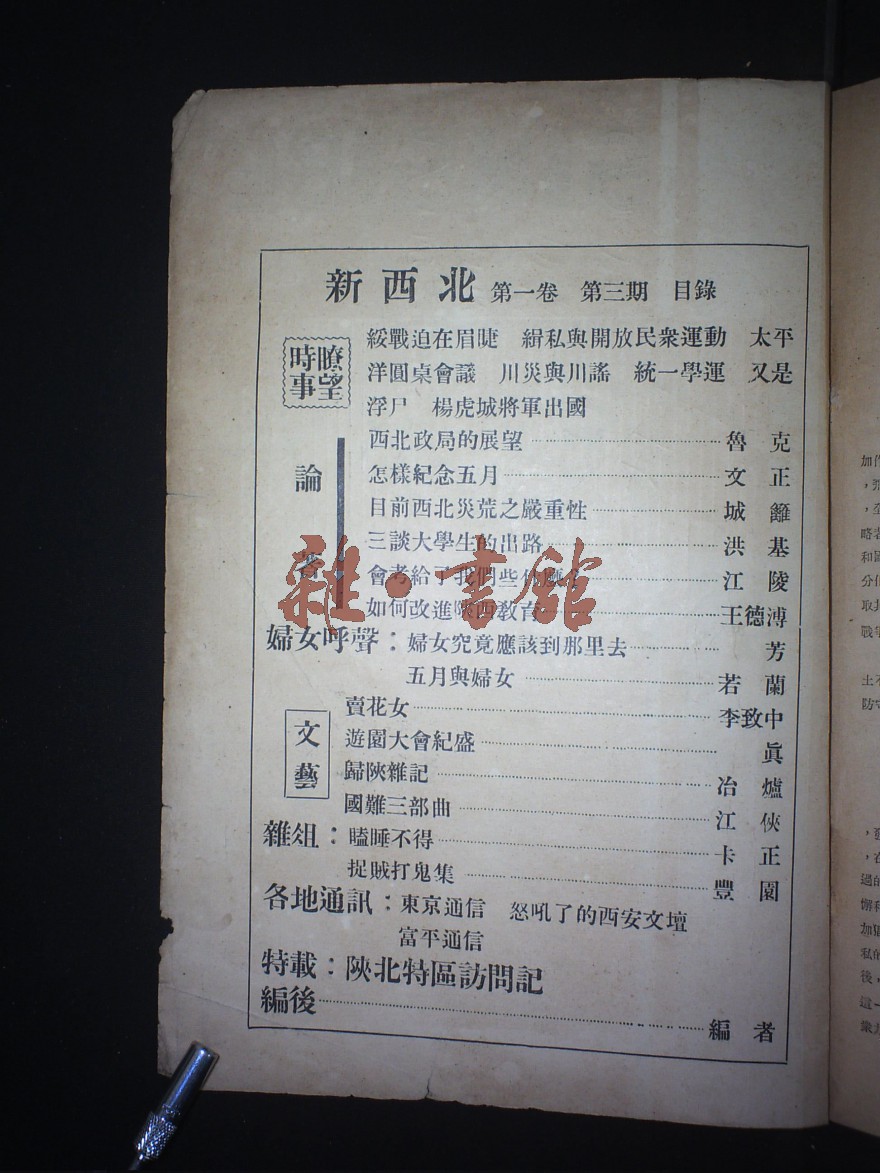 新西北 第一卷 第三期 目錄
時事瞭望
綏戰迫在眉睫 緝私與開放民衆運動 太平
洋圓桌會議 川災與川謠 統一學運 又是
浮尸 楊虎城將軍出國
論著
西北政局的展望 魯克
怎樣紀念五月 文正
目前西北災荒之嚴重性 城籬
三談大學生的出路 洪基
會考給了我們些什麼? 江陵
如何改進陝西教育 王德溥
婦女呼聲：婦女究竟應該到那里去 芳
五月與婦女 若蘭
文藝
賣花女 李致中
遊園大會紀盛 眞
歸陝雜記 冶爐
國難三部曲 江俠
雜俎：瞌睡不得 卡正
捉賊打鬼集 豐園
各地通訊：東京通信 怒吼了的西安文壇
富平通信
特載：陝北特區訪問記
編後 編者
雜·書館